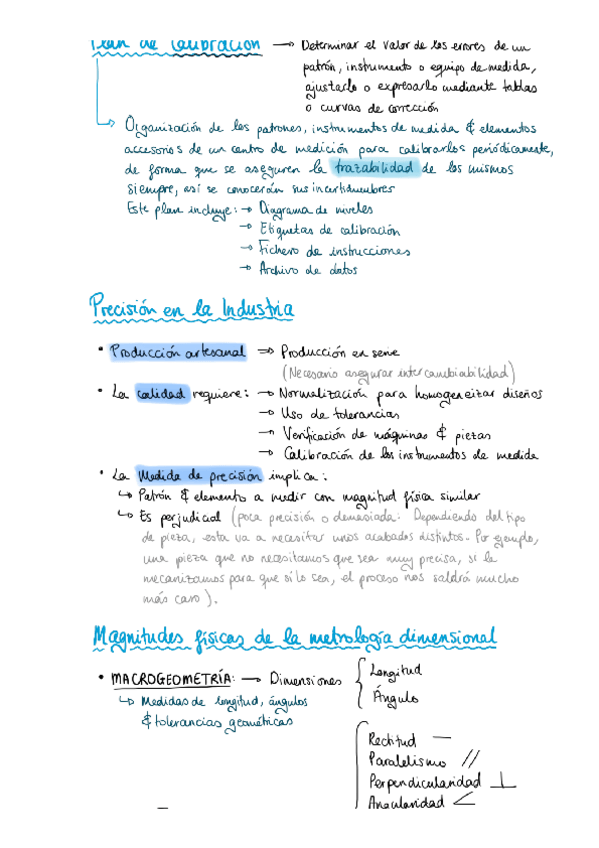 Plan de Calibración → Determinar el valor de los errores de un
patrón, instrumento o equipo de medida,
ajustarlo o expresarlo mediante tablas
o curvas de corrección
↳ Organización de los patrones, instrumentos de medida & elementos
accesorios de un centro de medición para calibrarlos periódicamente,
de forma que se aseguren la trazabilidad de los mismos
siempre, así se conocerán sus incertidumbres
Este plan incluye: → Diagrama de niveles
→ Etiquetas de calibración
→ Fichero de instrucciones
→ Archivo de datos
Precisión en la Industria
• Producción artesanal → Producción en serie
(Necesario asegurar intercambiabilidad)
• La calidad requiere: → Normalización para homogeneizar diseños
→ Uso de tolerancias
→ Verificación de máquinas & piezas
→ Calibración de los instrumentos de medida
• La Medida de precisión implica:
↳ Patrón & elemento a medir con magnitud física similar
↳ Es perjudicial (poca precisión o demasiada: Dependiendo del tipo
de pieza, esta va a necesitar unos acabados distintos. Por ejemplo,
una pieza que no necesitamos que sea muy precisa, si la
mecanizamos para que si lo sea, el proceso nos saldrá mucho
más caro).
Magnitudes físicas de la metrología dimensional
• MACROGEOMETRÍA: → Dimensiones { Longitud
Ángulo
↳ Medidas de longitud, ángulos
& tolerancias geométicas
Rectitud —
Paralelismo //
Perpendicularidad ⊥
Angularidad ∠